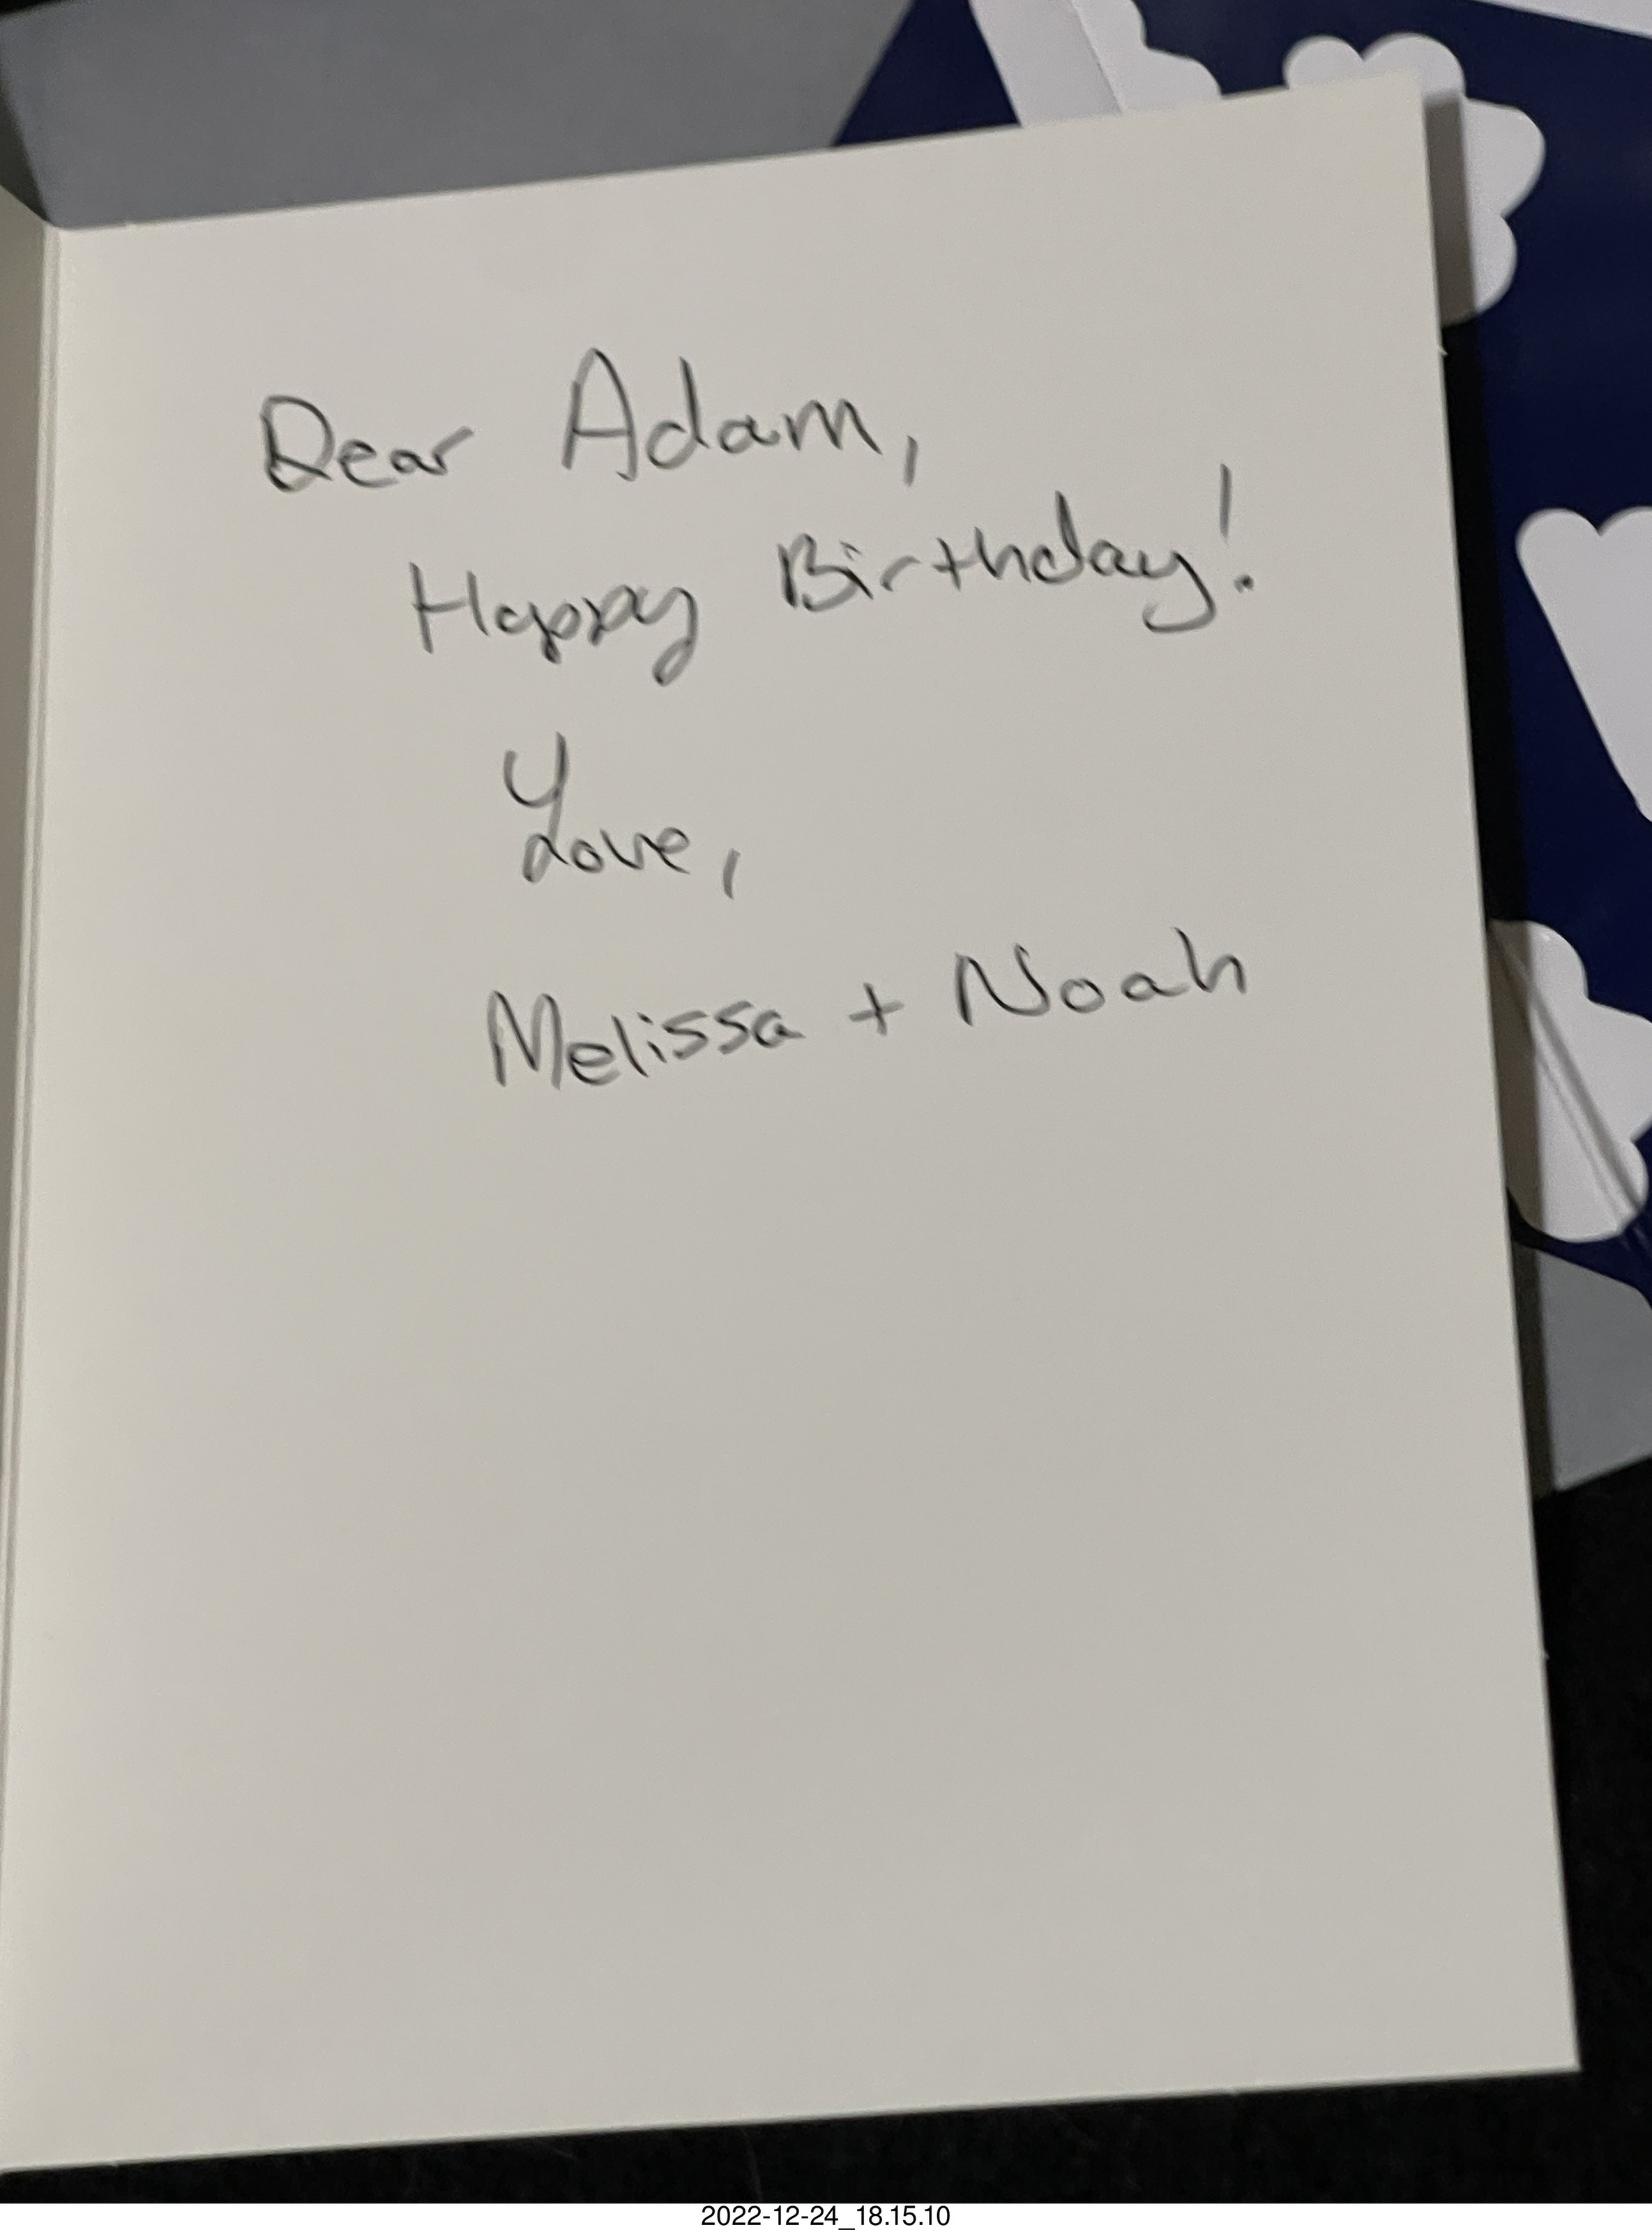 Dear Adam,
Happy Birthday!
Love,
Melissa + Noah
2022-12-24_18.15.10